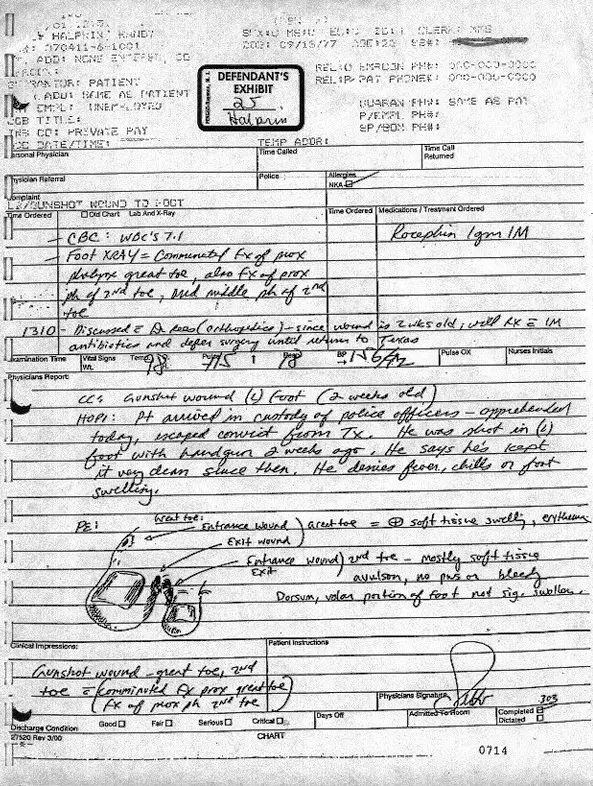 HALPRIN, RANDY
970411-6-1001
ADD: NONE
DOB: 09/13/77
DEFENDANT'S
EXHIBIT
25
Halprin
PATIENT
ADD: SAME AS PATIENT
EMPL: UNEMPLOYED
JOB TITLE:
INS CO: PRIVATE PAY
DATE/TIME:
REL: EMERGEN PH#: 000-000-0000
REL: PAT PHONE#: 000-000-0000
GUARAN PH#: SAME AS PAT
P/EMPL PH#:
SP/BON PH#:
TEMP ADDR:
Personal Physician
Time Called
Time Call
Returned
Physician Referral
Police
Allergies
NKA
Complaint
GUNSHOT WOUND TO FOOT
Time Ordered
Old Chart Lab And X-Ray
Time Ordered
Medications / Treatment Ordered
- CBC: WBC's 7.1
Rocephin 1gm IM
- Foot XRAY = Comminuted fx of prox
phalynx great toe, also fx of prox
ph of 2nd toe, and middle ph of 2nd
toe
1310 - Discussed c Dr. Rees (orthopedics) - since wound is 2 wks old, will Rx c IM
antibiotics and defer surgery until return to Texas
Examination Time
Vital Signs
WL
Temp 98
Pulse 75
Resp 18
BP
Pulse OX
Nurses Initials
Physicians Report:
CC: Gunshot wound (L) Foot (2 weeks old)
HOPI: Pt arrived in custody of police officers - apprehended
today, escaped convict from Tx. He was shot in (L)
foot with handgun 2 weeks ago. He says he's kept
it very clean since then. He denies fever, chills or foot
swelling.
PE:
Great toe:
Entrance wound) Great toe = ⊕ soft tissue swelling, erythema
Exit wound
Entrance wound) 2nd toe - mostly soft tissue
Exit
avulsion, no pus or bleeding
Dorsum, volar portion of foot not sig. swollen.
Clinical Impressions:
Patient Instructions
Gunshot wound - great toe, 2nd
toe = (comminuted fx prox great toe)
(fx of prox ph 2nd toe)
Physicians Signature
303
Discharge Condition
Good
Fair
Serious
Critical
Days Off
Admitted To Room
Completed
Dictated
27520 Rev 3/00
CHART
0714